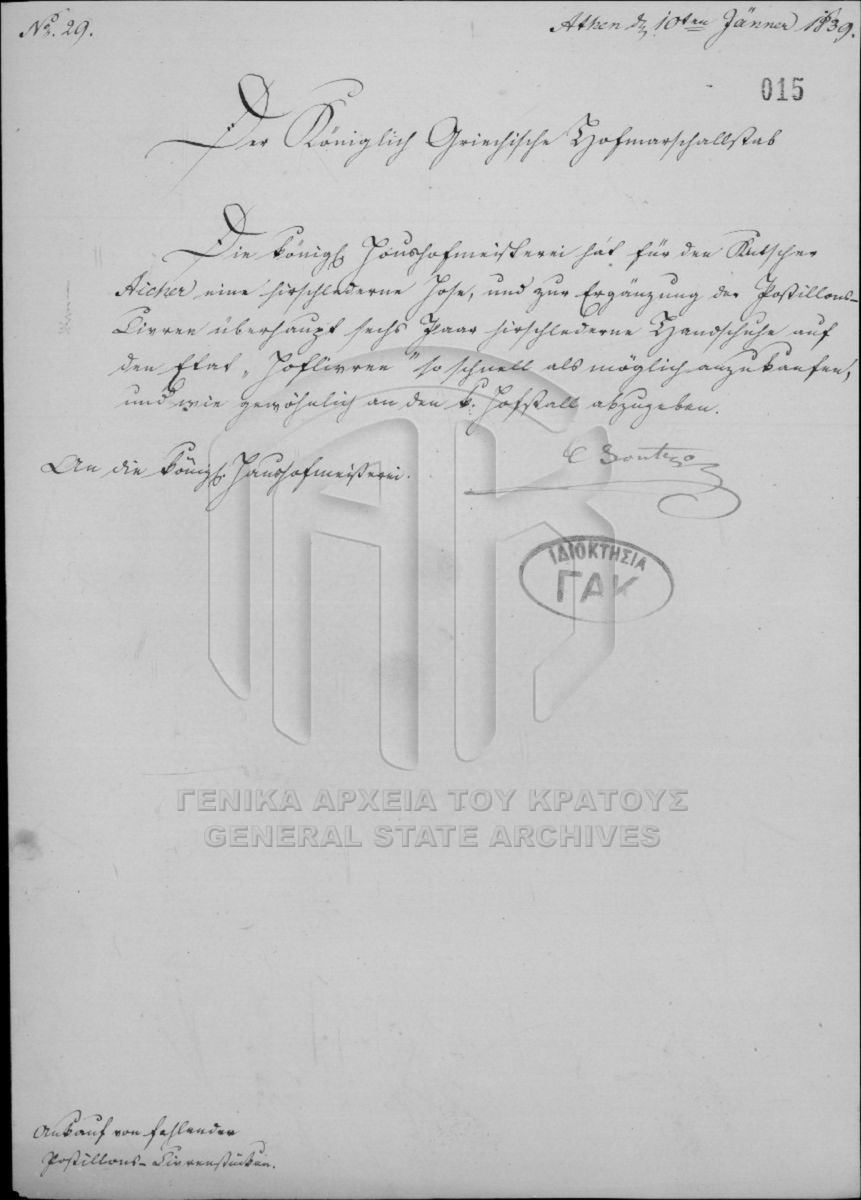 No. 29.
Athen d. 10ten Jänner 1839.
015
Der Königlich Griechische Hofmarschallstab
Die königl. Haushofmeisterei hat für den Kutscher
Aicher eine hirschlederne Hose, und zur Ergänzung der Postillons-
Livreen überhaupt sechs Paar hirschlederne Handschuhe auf
den Etat „Hoflivreen" so schnell als möglich anzukaufen,
und wie gewöhnlich an den k. Hofstall abzugeben.
An die königl. Haushofmeisterei.
ΙΔΙΟΚΤΗΣΙΑ
ΓΑΚ
ΓΕΝΙΚΑ ΑΡΧΕΙΑ ΤΟΥ ΚΡΑΤΟΥΣ
GENERAL STATE ARCHIVES
Ankauf von fehlenden
Postillons-Livreestücken.